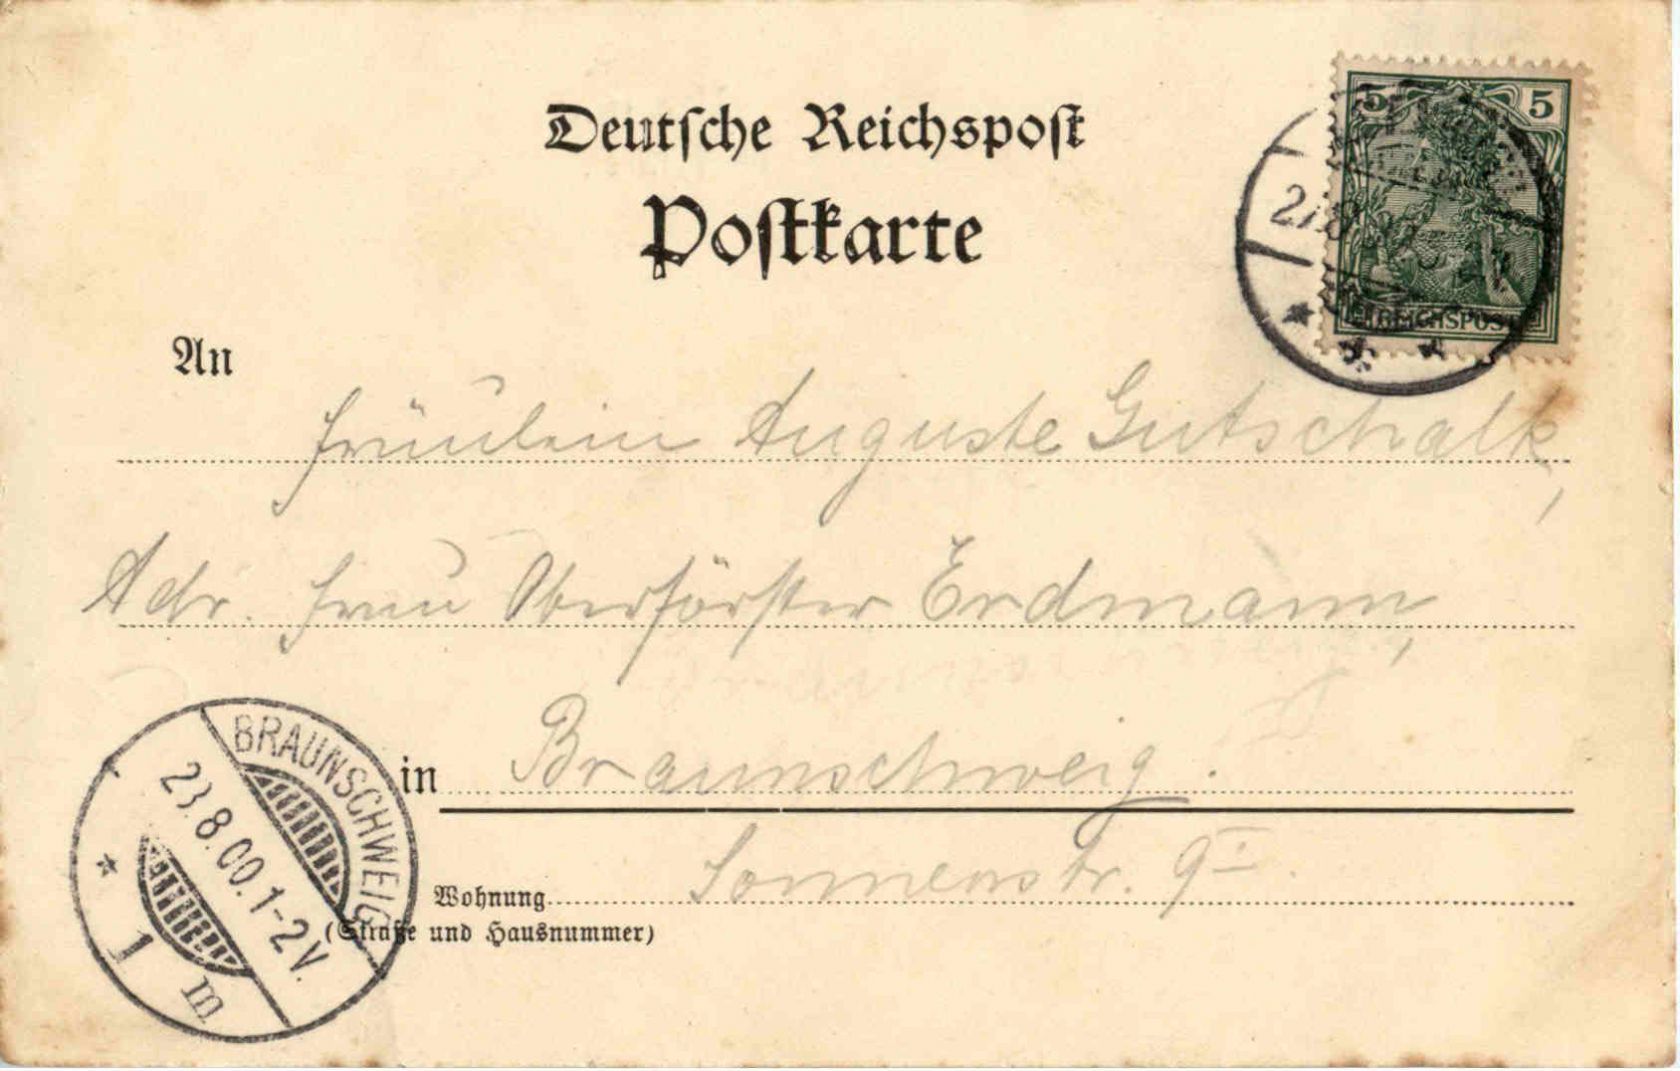 Deutsche Reichspost
Postkarte
5 5
REICHSPOST
An
Fräulein Auguste Gutschalk,
Adr. Frau Oberförster Erdmann,
in Braunschweig.
Sonnenstr. 9 I.
Wohnung
(Straße und Hausnummer)
BRAUNSCHWEIG
23.8.00.1-2V.
* 1 m